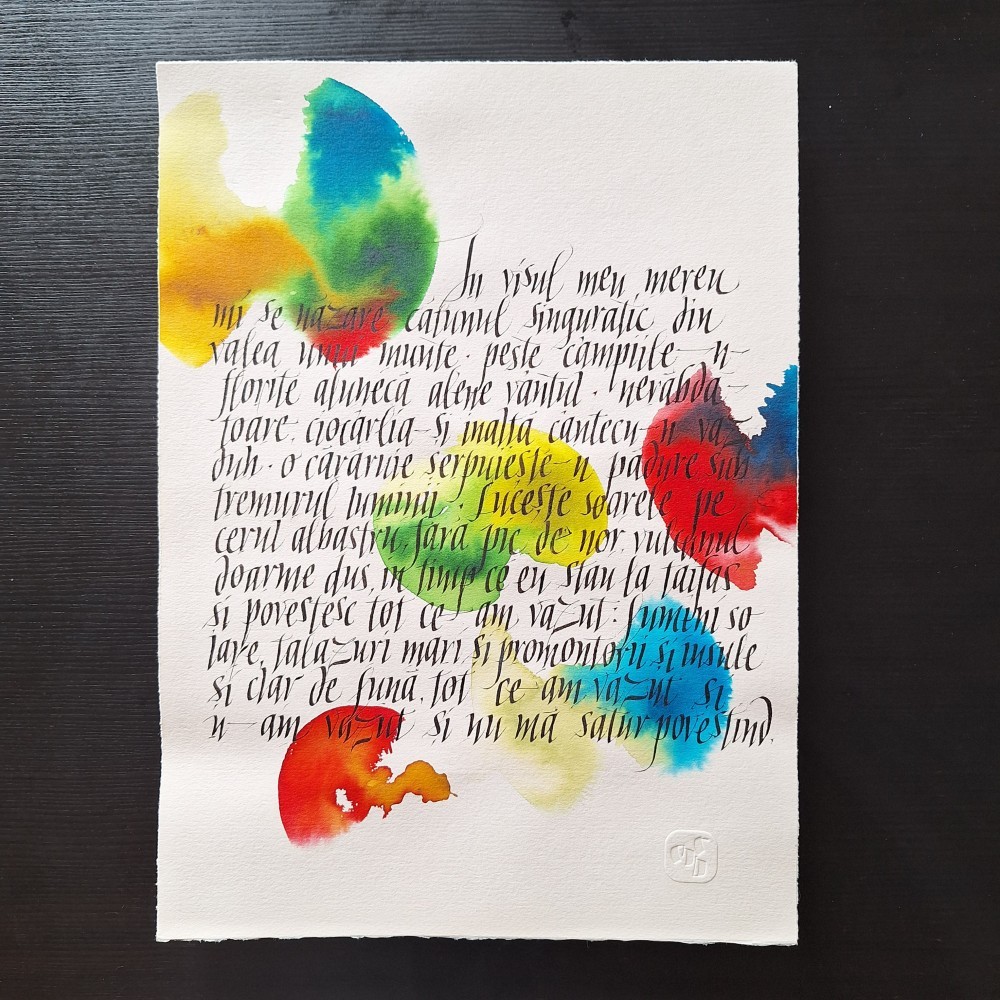 În visul meu mereu
mi se năzare cătunul singuratic din
valea unui munte. peste câmpiile-n-
florite alunecă alene vântul. nerăbdă-
toare, ciocârlia-și înalță cântecu-n vă-
zduh. o cărăruie șerpuiește-n pădure sub
tremurul luminii. Lucește soarele pe
cerul albastru, fără pic de nor, vulcanul
doarme dus, în timp ce eu stau la taifas
și povestesc tot ce-am văzut: lumini so-
lare, talazuri mari, și promontorii și insule
și clar de lună, tot ce-am văzut și
n-am văzut și nu mă satur povestind.